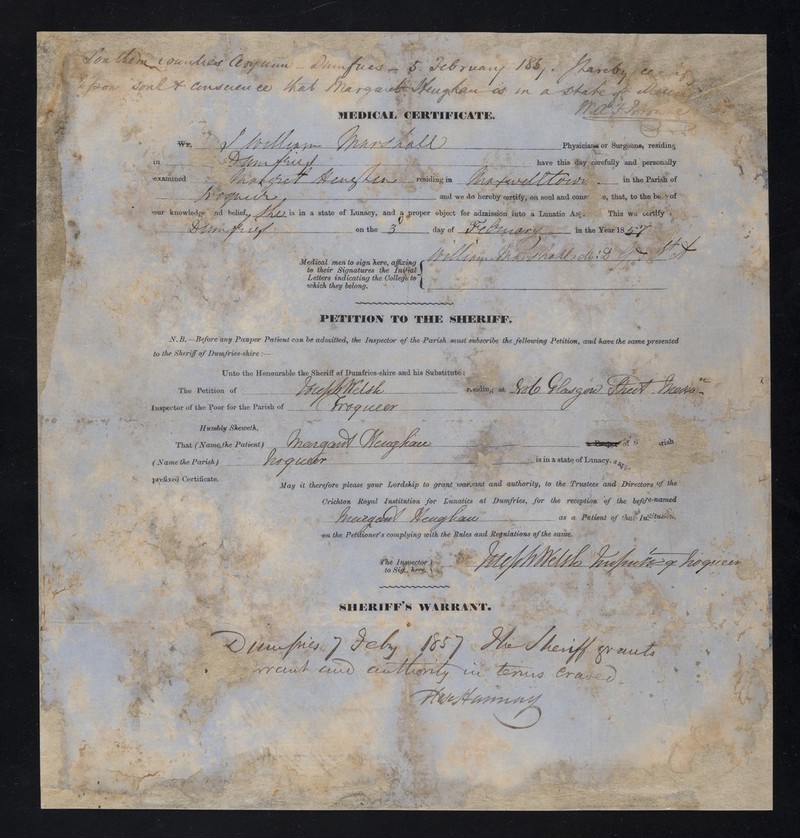 Southern Counties Asylum - Dumfries - 5 February 1857. I hereby
upon Soul & Conscience that Margaret Heughan is in a state of
MEDICAL CERTIFICATE.
We, I William Marshall Physicians or Surgeons, residing
in Dumfries have this day carefully and personally
examined Margret Heughan residing in Maxwelltown in the Parish of
Troqueer and we do hereby certify, on soul and that, to the be of
our knowledge nd belief, She is in a state of Lunacy, and a proper object for admission into a Lunatic This we certify
Dumfries on the 3d day of February in the Year 1857
Medical men to sign here, affixing
to their Signatures the Initial
Letters indicating the College to
which they belong.
William Marshall M:D St A
PETITION TO THE SHERIFF.
N.B.—Before any Pauper Patient can be admitted, the Inspector of the Parish must subscribe the following Petition, and have the same presented
to the Sheriff of Dumfries-shire:—
Unto the Honourable the Sheriff of Dumfries-shire and his Substitute:
The Petition of Joseph Welsh residing at Glasgow Street
Inspector of the Poor for the Parish of Troqueer
Humbly Sheweth,
That (Name the Patient) Margaret Heughan a Pauper of
(Name the Parish) Troqueer is in a state of Lunacy,
prefixed Certificate.
May it therefore please your Lordship to grant warrant and authority, to the Trustees and Directors of the
Crichton Royal Institution for Lunatics at Dumfries, for the reception of the before-named
Margaret Heughan as a Patient of that Institution,
on the Petitioner's complying with the Rules and Regulations of the same.
The Inspector
to Sign here.
Joseph Welsh Inspector of Troqueer
SHERIFF'S WARRANT.
Dumfries 7 Feby 1857 The Sheriff grants
warrant and authority in terms craved.
Hannay